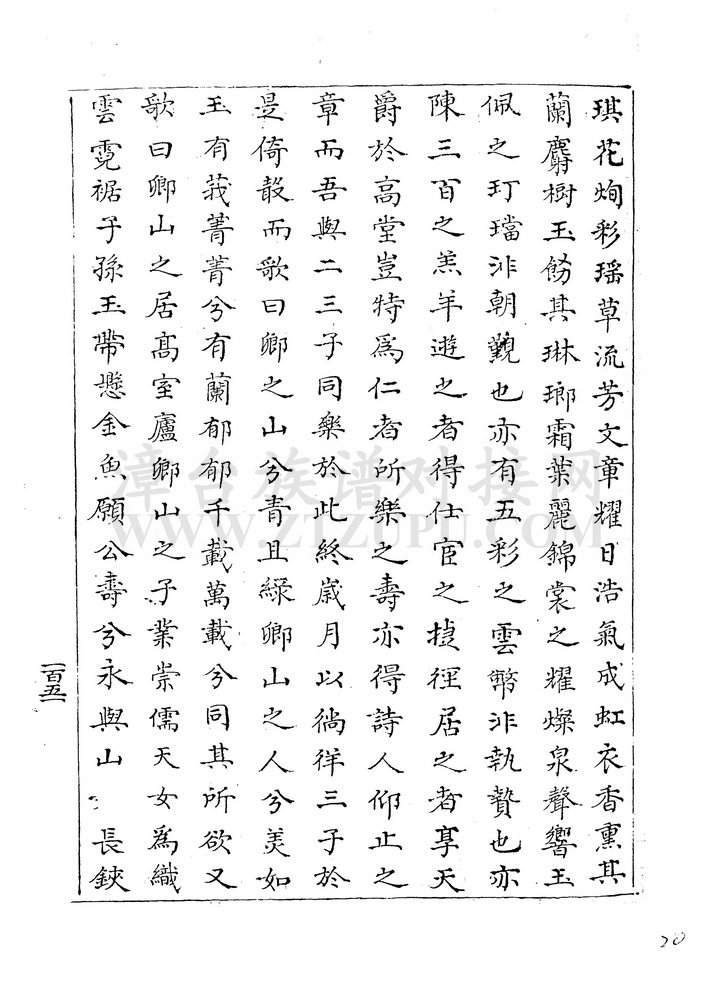 琪花炯彩瑶草流芳文章耀日浩氣成虹衣香熏其
蘭麝樹玉餝其琳瑯霜葉麗錦裳之耀燦泉聲響玉
佩之玎璫非朝覲也亦有五彩之雲幣非執贄也亦
陳三百之羔羊遊之者得仕宦之捷徑居之者享天
爵於高堂豈特爲仁者所樂之壽亦得詩人仰止之
章而吾與二三子同樂於此終歲月以徜徉三子於
是倚㪚而歌曰卿之山兮青且綠卿山之人兮美如
玉有莪菁菁兮有蘭郁郁千載萬載兮同其所欲又
歌曰卿山之居高室廬卿山之子業崇儒天女爲織
雲霓裾子孫玉帶懸金魚願公壽兮永與山 長鋏
一百五
漳台族谱对接网
WWW.ZTZUPU.COM
20